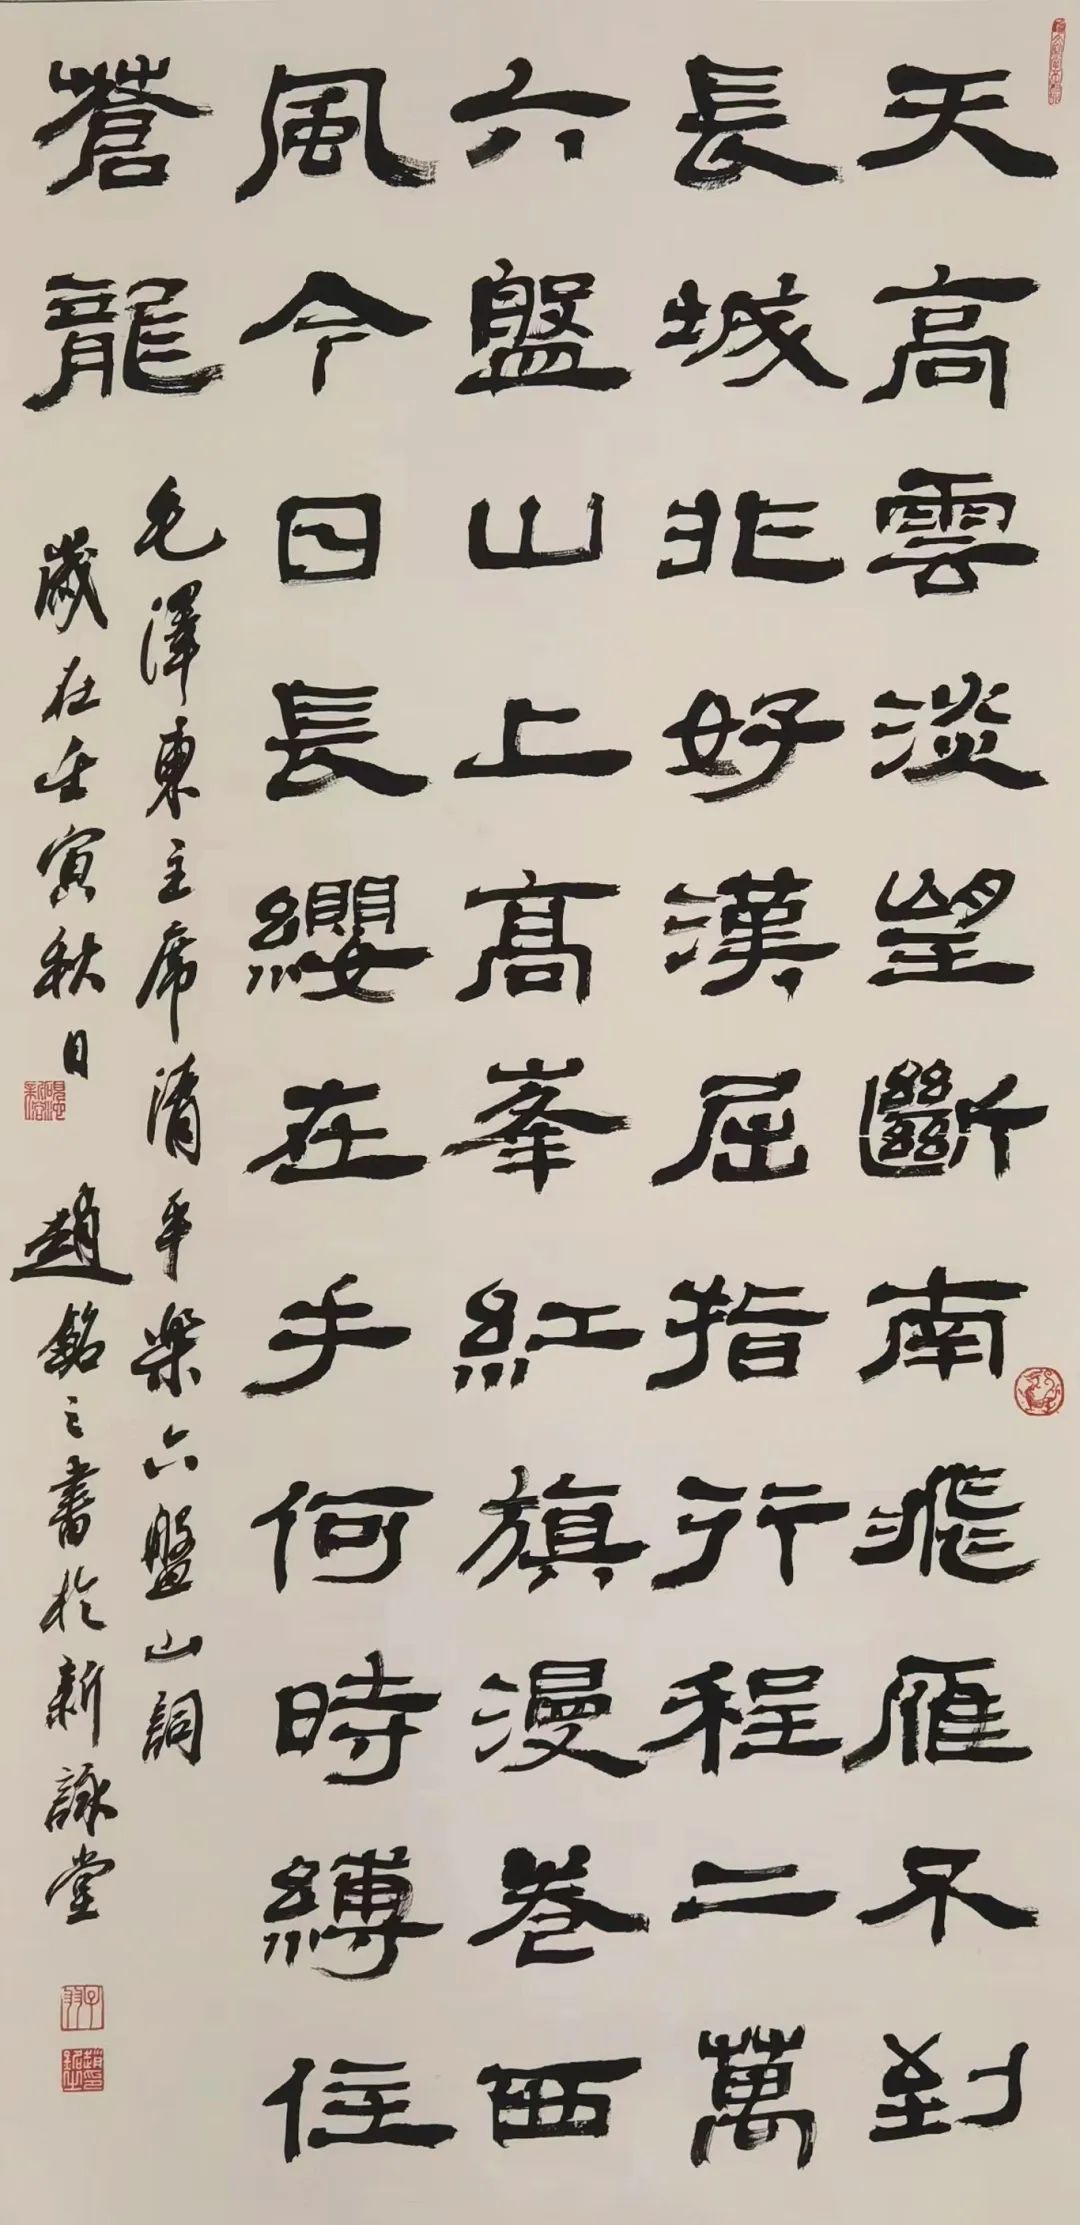 天高雲淡望斷南飛雁不到
長城非好漢屈指行程二萬
六盤山上高峯紅旗漫卷西
風今日長纓在手何時縛住
蒼龍
毛澤東主席清平樂六盤山詞
歲在壬寅秋日 趙銘之書於新詠堂